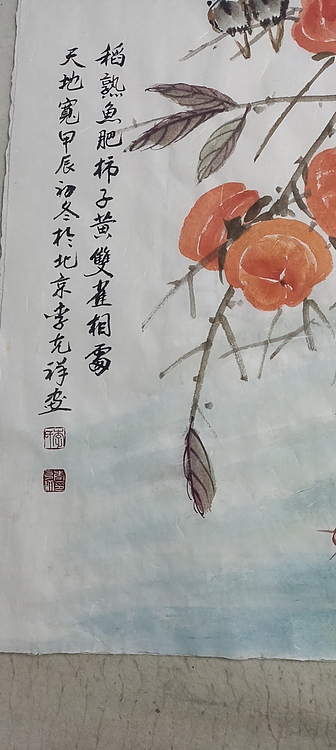 稻熟魚肥柿子黄雙雀相露
天地寬甲辰初冬於北京李克祥画